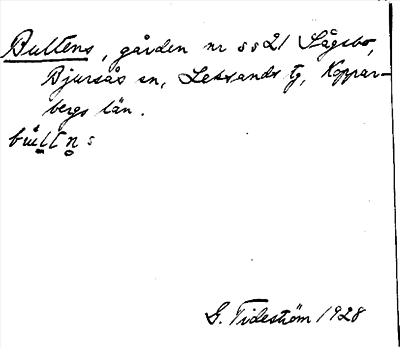 Bullens, gården nr 5 s 21 Sågsbo,
Bjursås sn, Leksands tg, Koppar-
bergs län.
bullns
G. Tideström 1928